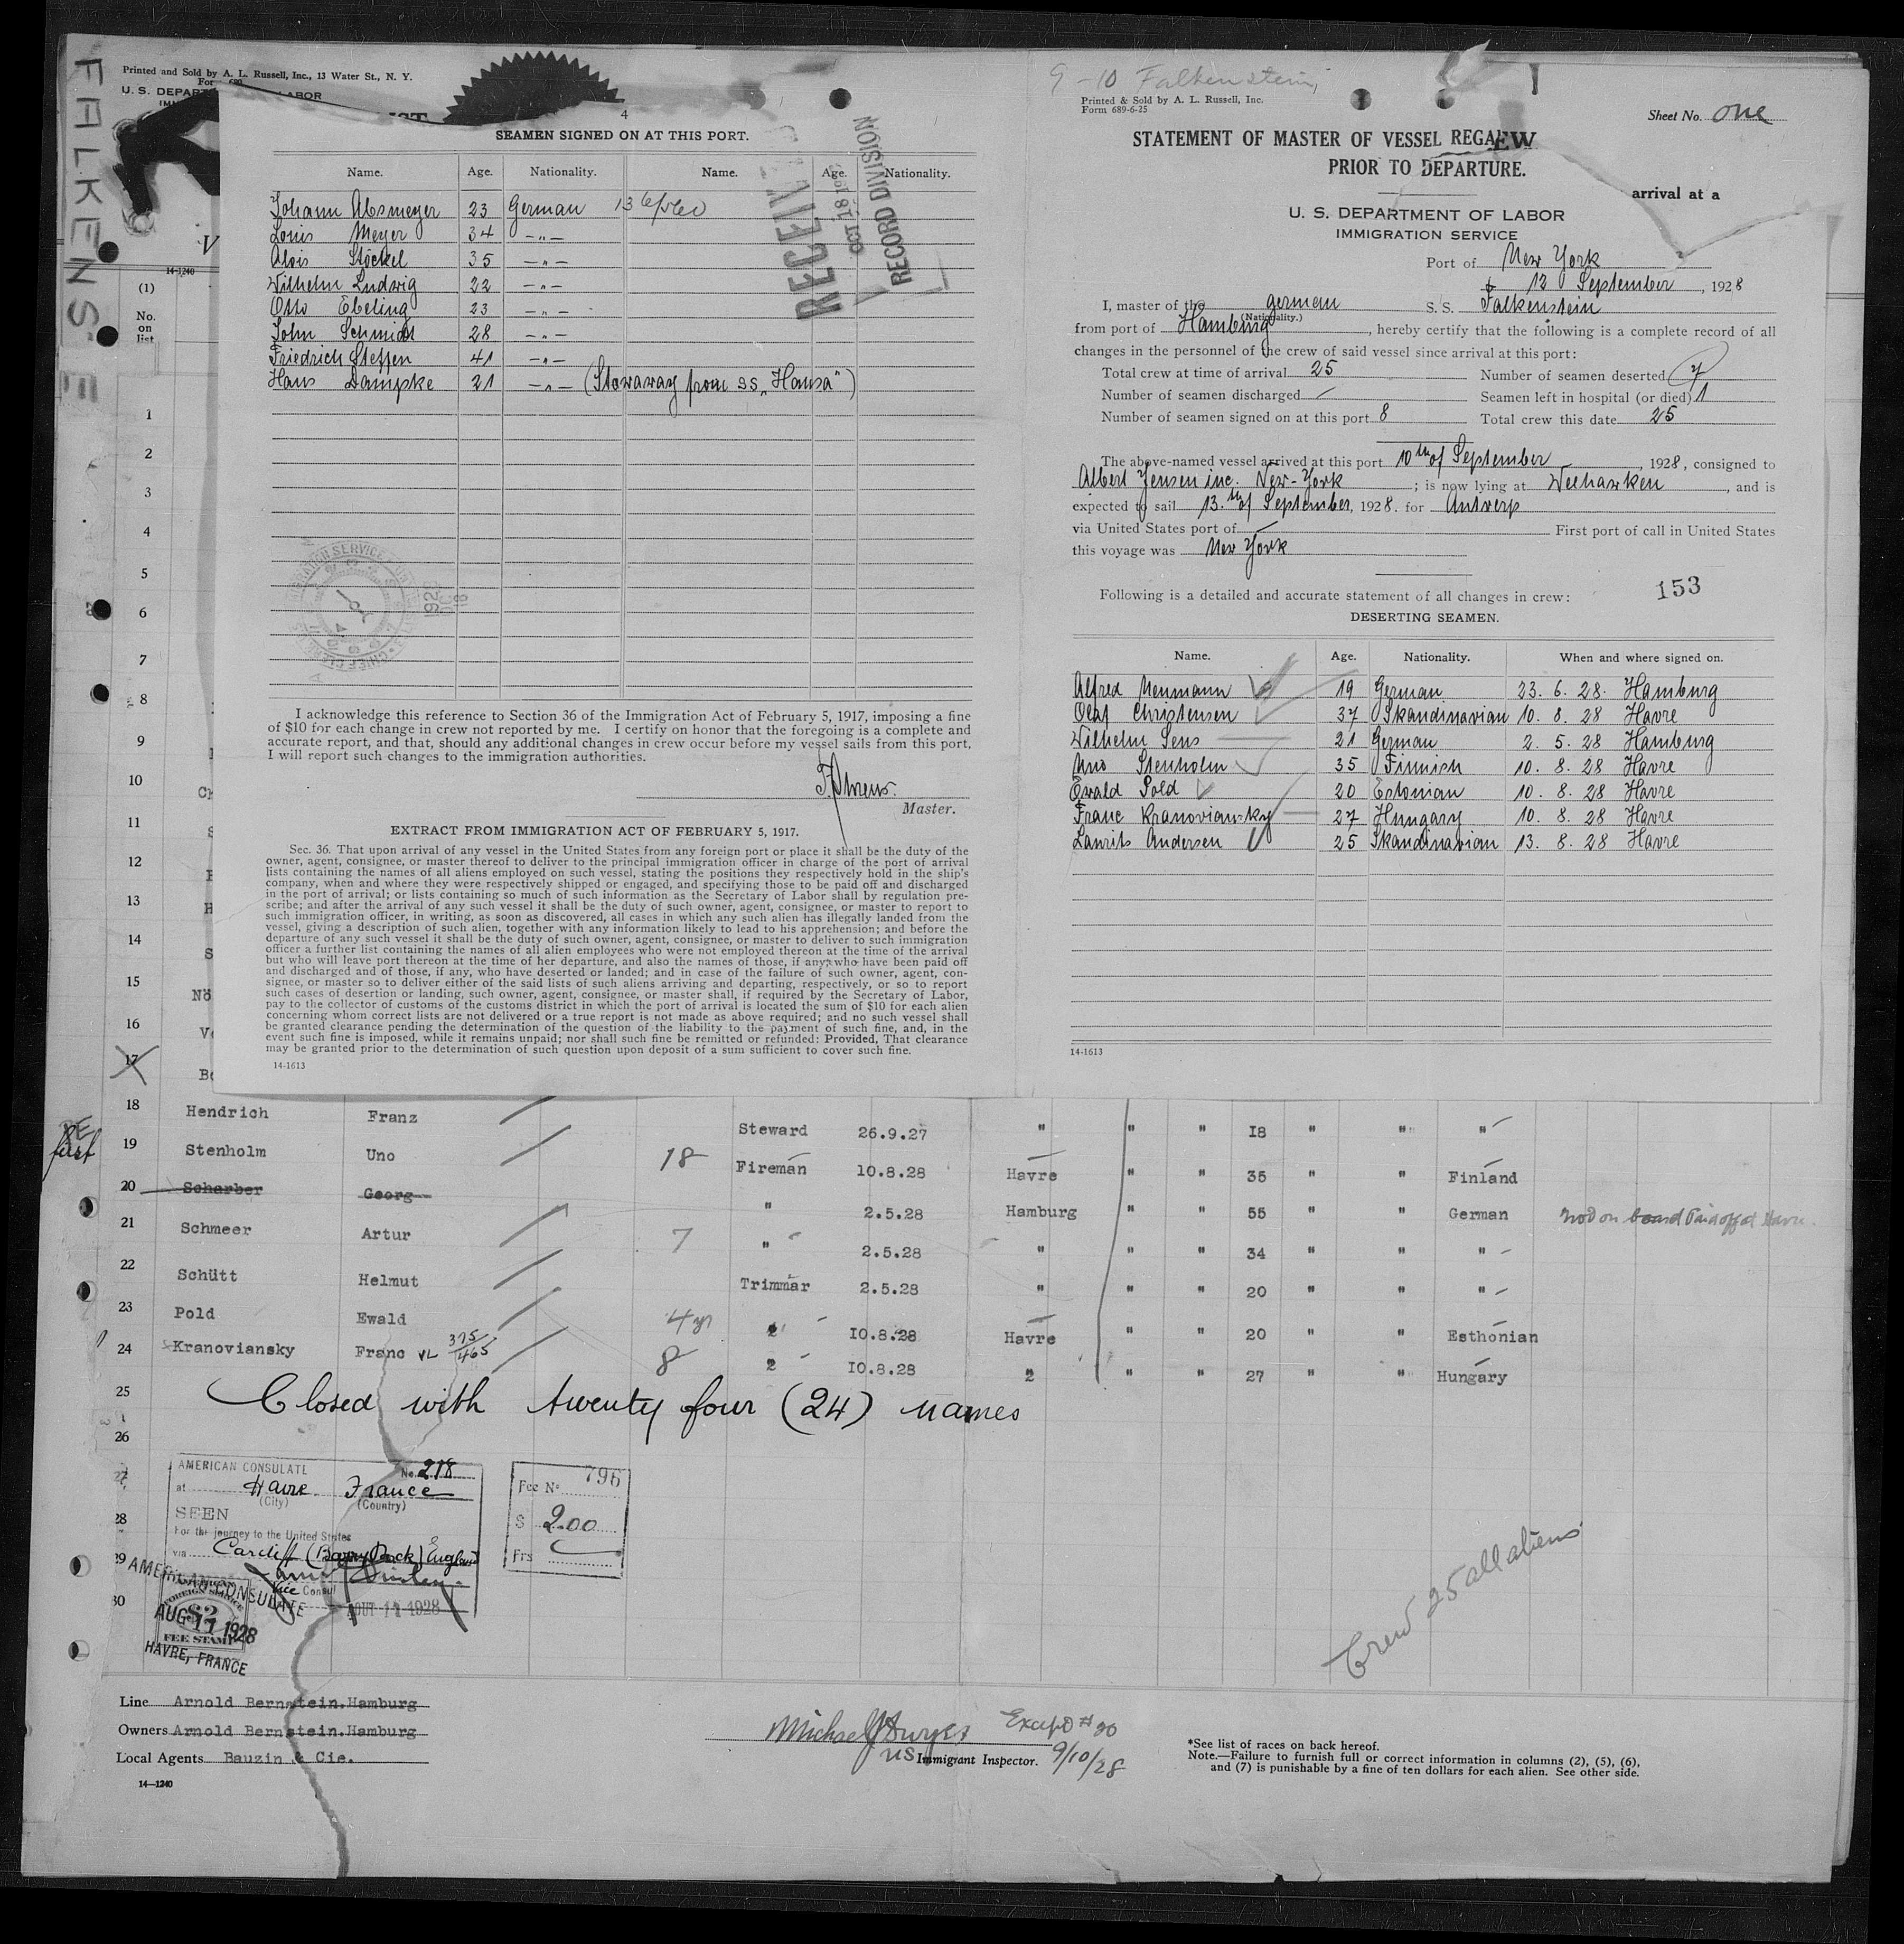 FALKENS
E
Printed and Sold by A. L. Russell, Inc., 13 Water St., N. Y.
U. S. DEPAR ABOR
14-1240
(1)
No.
on
list
1
2
3
4
5
6
7
8
9
10
11
12
13
14
15
16
17
4
SEAMEN SIGNED ON AT THIS PORT.
Name. Age. Nationality. Name. Age. Nationality.
Johann Absmeyer 23 German
Louis Meyer 34 —"—
Alois Stöckel 35 —"—
Wilhelm Ludwig 22 —"—
Otto Ebeling 23 —"—
John Schmidt 28 —"—
Friedrich Steffen 41 —"—
Hans Dampke 21 —"— (Stowaway from SS „Hansa")
RECEIVED
OCT 18 1928
RECORD DIVISION
I acknowledge this reference to Section 36 of the Immigration Act of February 5, 1917, imposing a fine
of $10 for each change in crew not reported by me. I certify on honor that the foregoing is a complete and
accurate report, and that, should any additional changes in crew occur before my vessel sails from this port,
I will report such changes to the immigration authorities.
Master.
EXTRACT FROM IMMIGRATION ACT OF FEBRUARY 5, 1917.
Sec. 36. That upon arrival of any vessel in the United States from any foreign port or place it shall be the duty of the
owner, agent, consignee, or master thereof to deliver to the principal immigration officer in charge of the port of arrival
lists containing the names of all aliens employed on such vessel, stating the positions they respectively hold in the ship's
company, when and where they were respectively shipped or engaged, and specifying those to be paid off and discharged
in the port of arrival; or lists containing so much of such information as the Secretary of Labor shall by regulation pre-
scribe; and after the arrival of any such vessel it shall be the duty of such owner, agent, consignee, or master to report to
such immigration officer, in writing, as soon as discovered, all cases in which any such alien has illegally landed from the
vessel, giving a description of such alien, together with any information likely to lead to his apprehension; and before the
departure of any such vessel it shall be the duty of such owner, agent, consignee, or master to deliver to such immigration
officer a further list containing the names of all alien employees who were not employed thereon at the time of the arrival
but who will leave port thereon at the time of her departure, and also the names of those, if any, who have been paid off
and discharged and of those, if any, who have deserted or landed; and in case of the failure of such owner, agent, con-
signee, or master so to deliver either of the said lists of such aliens arriving and departing, respectively, or so to report
such cases of desertion or landing, such owner, agent, consignee, or master shall, if required by the Secretary of Labor,
pay to the collector of customs of the customs district in which the port of arrival is located the sum of $10 for each alien
concerning whom correct lists are not delivered or a true report is not made as above required; and no such vessel shall
be granted clearance pending the determination of the question of the liability to the payment of such fine, and, in the
event such fine is imposed, while it remains unpaid; nor shall such fine be remitted or refunded: Provided, That clearance
may be granted prior to the determination of such question upon deposit of a sum sufficient to cover such fine.
14-1613
9-10 Falkenstein,
Printed & Sold by A. L. Russell, Inc.
Form 689-6-25
Sheet No. one
STATEMENT OF MASTER OF VESSEL REGA EW
PRIOR TO DEPARTURE.
arrival at a
U. S. DEPARTMENT OF LABOR
IMMIGRATION SERVICE
Port of New York
12 September, 1928
I, master of the german S. S. Falkenstein
(Nationality.)
from port of Hamburg, hereby certify that the following is a complete record of all
changes in the personnel of the crew of said vessel since arrival at this port:
Total crew at time of arrival 25 Number of seamen deserted 7
Number of seamen discharged — Seamen left in hospital (or died) 1
Number of seamen signed on at this port 8 Total crew this date 25
The above-named vessel arrived at this port 10th of September, 1928, consigned to
Albert Jensen inc. New-York; is now lying at Weehawken, and is
expected to sail 13.th of September, 1928. for Antwerp
via United States port of — First port of call in United States
this voyage was New York
Following is a detailed and accurate statement of all changes in crew: 153
DESERTING SEAMEN.
Name. Age. Nationality. When and where signed on.
Alfred Neumann 19 German 23. 6. 28. Hamburg
Olaf Christensen 37 Skandinavian 10. 8. 28 Havre
Wilhelm Sens 21 German 2. 5. 28 Hamburg
Uno Stenholm 35 Finnish 10. 8. 28 Havre
Ewald Pold 20 Estonian 10. 8. 28 Havre
Franc Kranoviansky 27 Hungary 10. 8. 28 Havre
Laurits Andersen 25 Skandinavian 13. 8. 28 Havre
14-1613
18 Hendrich Franz Steward 26.9.27 " " " 18 " " "
19 Stenholm Uno 18 Fireman 10.8.28 Havre " " 35 " " Finland
20 Scharber Georg " 2.5.28 Hamburg " " 55 " " German Not on board Paid off at Havre.
21 Schmeer Artur 7 " 2.5.28 " " " 34 " " "
22 Schütt Helmut Trimmar 2.5.28 " " " 20 " " "
23 Pold Ewald 4 yr 10.8.28 Havre " " 20 " " Esthonian
24 Kranoviansky Franc VL 375/465 8 2 10.8.28 2 " " 27 " " Hungary
25 Closed with twenty four (24) names
26
27
28
29
30
AMERICAN CONSULATE No. 218
at Havre France
(City) (Country)
SEEN
For the journey to the United States
via Cardiff (Barry Dock) England
Vice Consul
AOUT 17 1928
AMERICAN CONSULATE
AUG 17 1928
HAVRE, FRANCE
FOREIGN SERVICE
$2
FEE STAMP
Fee No 796
$ 2.00
Frs
Crew 25 all aliens
Line Arnold Bernstein.Hamburg
Owners Arnold Bernstein.Hamburg
Local Agents Bauzin & Cie.
14—1240
Except # 20
US Immigrant Inspector. 9/10/28
*See list of races on back hereof.
Note.—Failure to furnish full or correct information in columns (2), (5), (6),
and (7) is punishable by a fine of ten dollars for each alien. See other side.